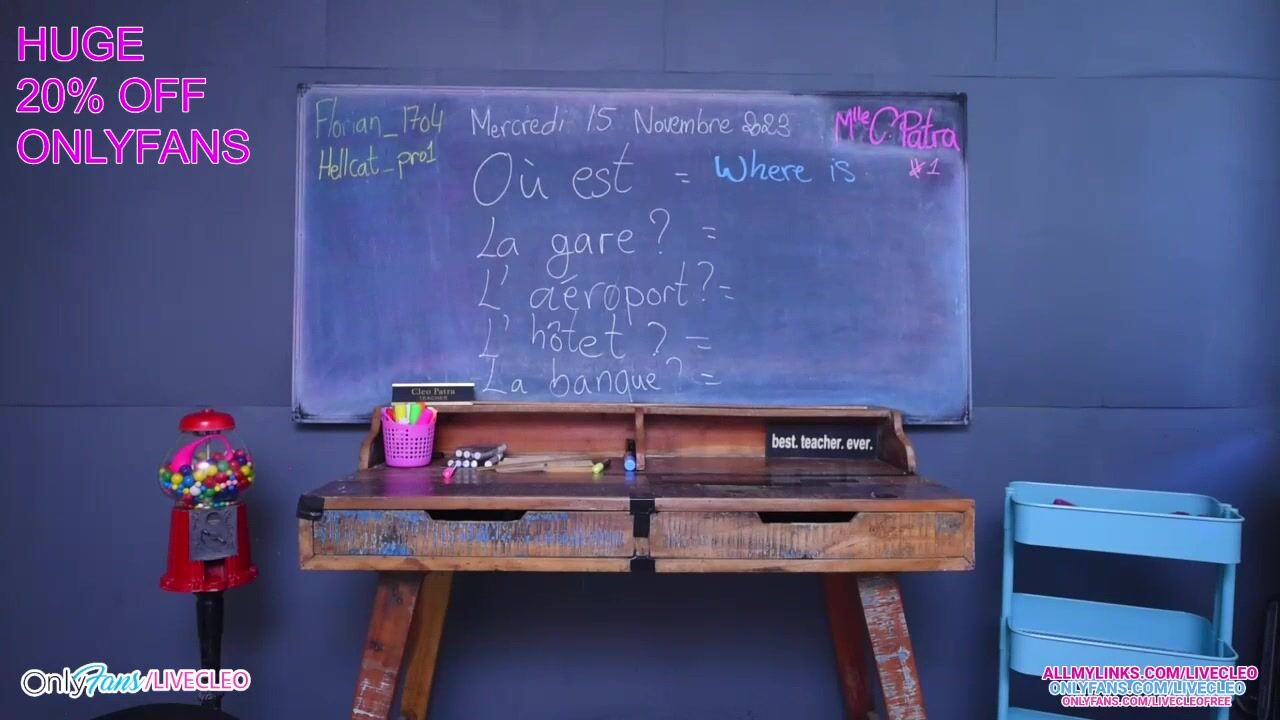 HUGE
20% OFF
ONLYFANS
Florian_1704
Hellcat_pro1
Mercredi 15 Novembre 2023
Mlle C. Patra
#1
Où est = Where is
La gare? =
L'aéroport? =
L'hôtet? =
La banque? =
Cleo Patra
TEACHER
best. teacher. ever.
OnlyFans/LIVECLEO
ALLMYLINKS.COM/LIVECLEO
ONLYFANS.COM/LIVECLEO
ONLYFANS.COM/LIVECLEOFREE